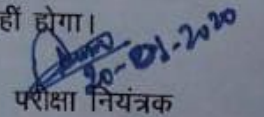 हीं होगा।
20-01-2020
परीक्षा नियंत्रक